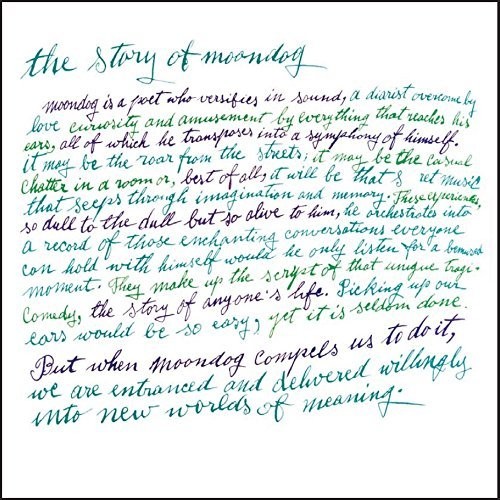 the story of moondog
moondog is a poet who versifies in sound, a diarist overcome by
love curiosity and amusement by everything that reaches his
ears, all of which he transposes into a symphony of himself.
it may be the roar from the streets; it may be the casual
chatter in a room or, best of all, it will be that s ret music
that seeps through imagination and memory. These experiences,
so dull to the dull but so alive to him, he orchestrates into
a record of those enchanting conversations everyone
can hold with himself would he only listen for a bemused
moment. They make up the script of that unique tragi-
comedy, the story of anyone's life. Picking up our
ears would be so easy, yet it is seldom done.
But when moondog compels us to do it,
we are entranced and delivered willingly
into new worlds of meaning.